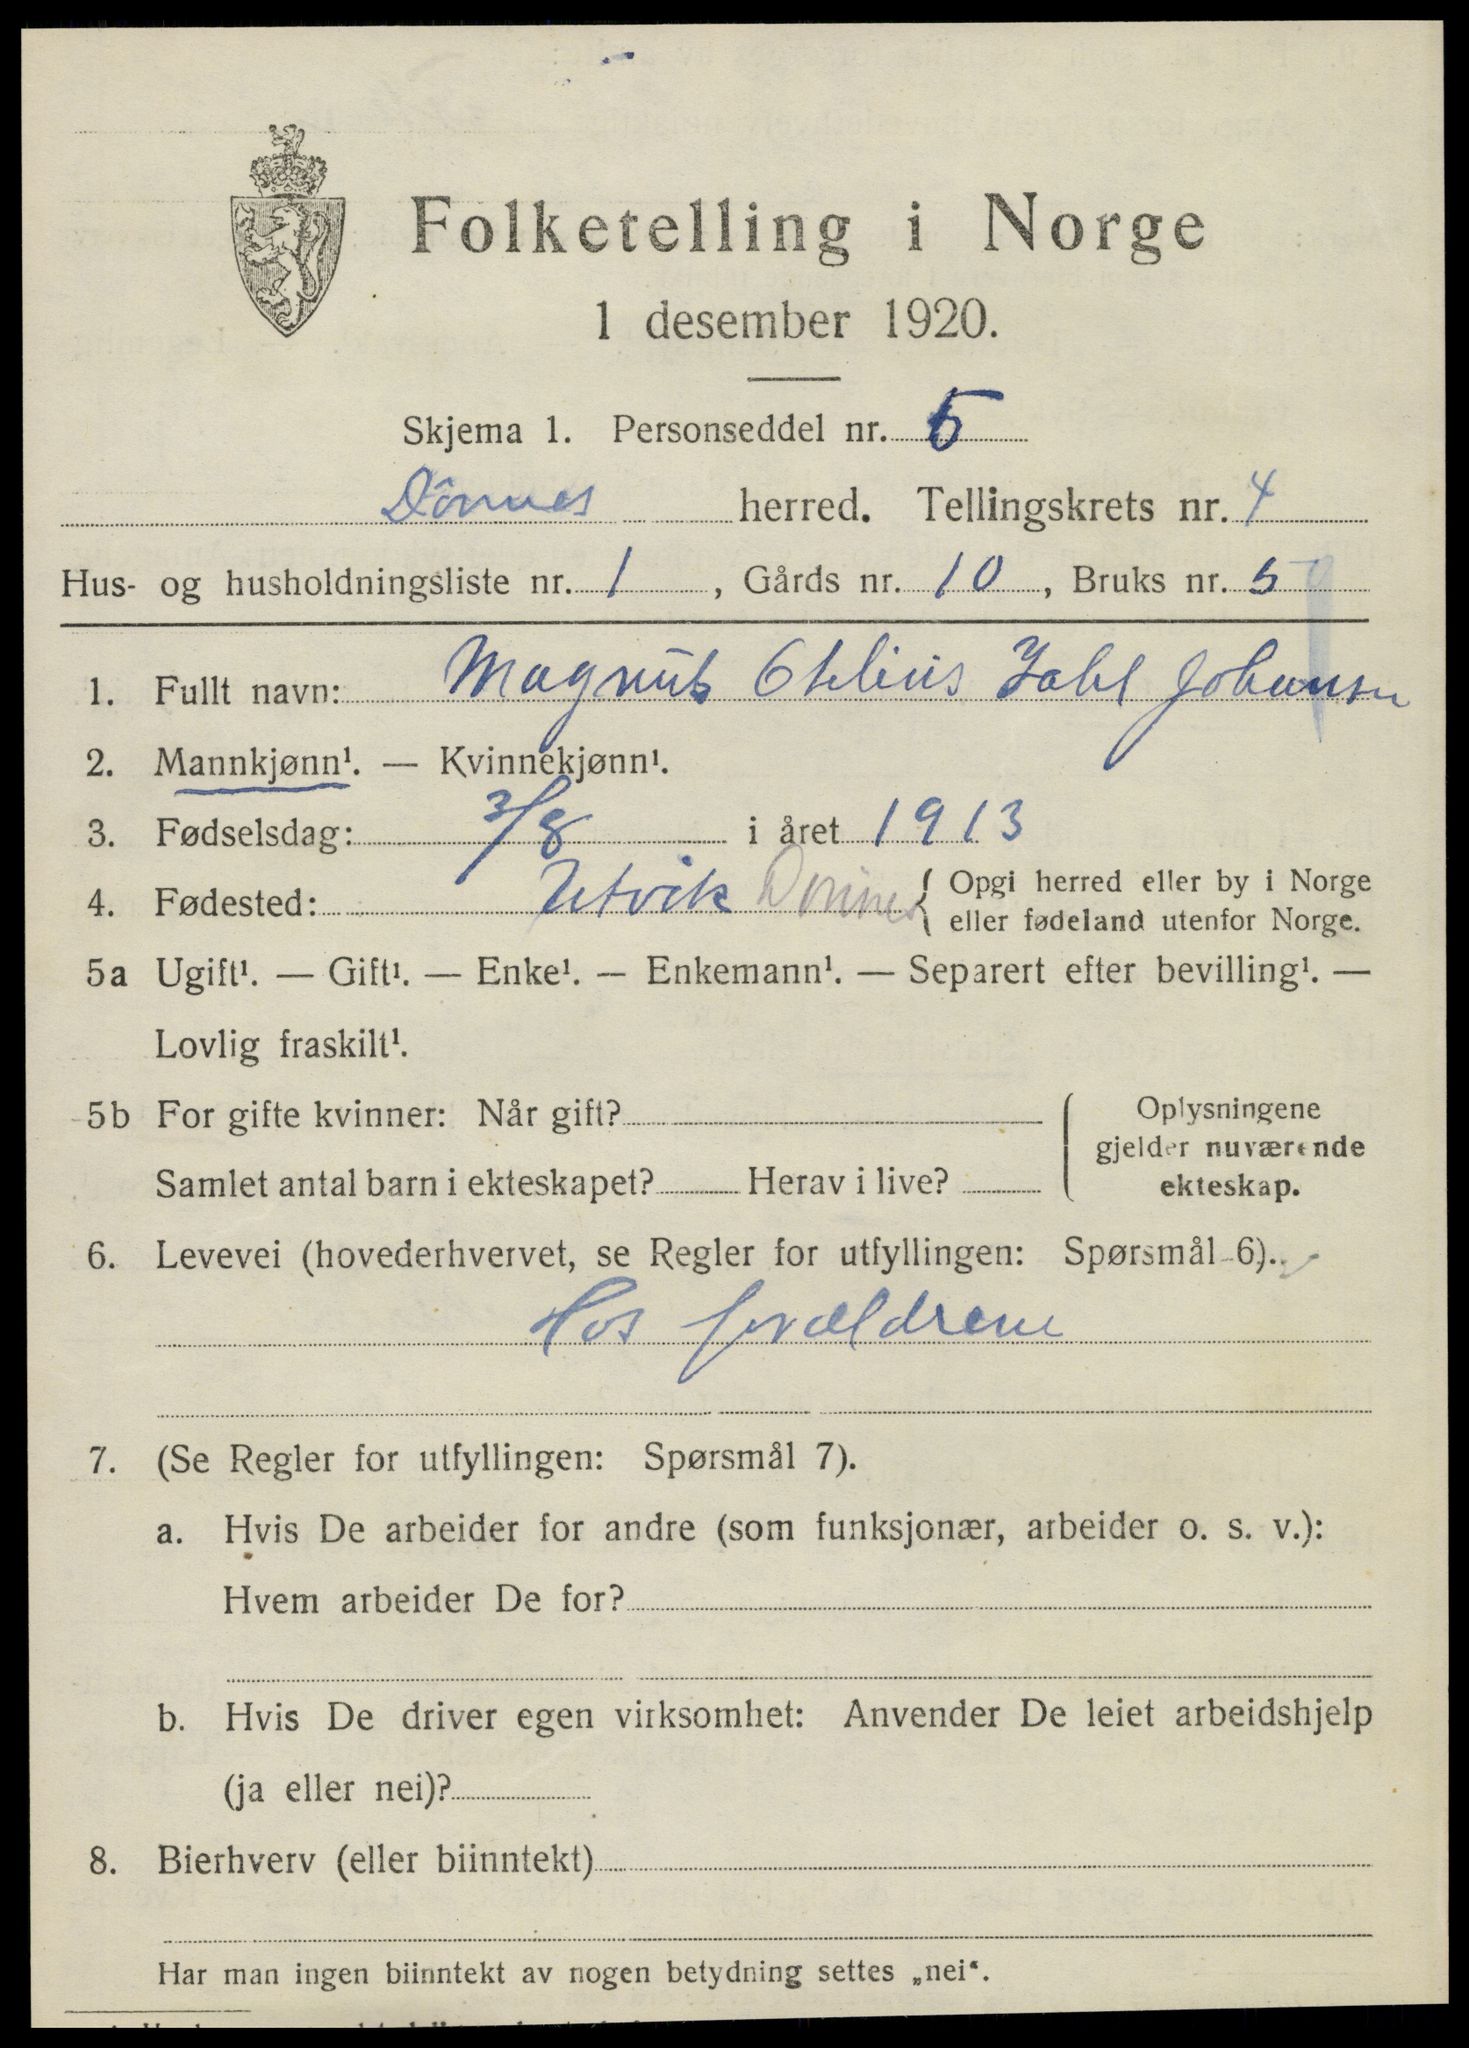 Folketelling i Norge
1 desember 1920.
Skjema 1. Personseddel nr. 5
Dönnes herred. Tellingskrets nr. 4
Hus- og husholdningsliste nr. 1, Gårds nr. 10, Bruks nr. 5
1. Fullt navn: Magnus Johansen
2. Mannkjønn¹. — Kvinnekjønn¹.
3. Fødselsdag: 3/8 i året 1913
4. Fødested: Utvik Dönnes { Opgi herred eller by i Norge
eller fødeland utenfor Norge.
5a Ugift¹. — Gift¹. — Enke¹. — Enkemann¹. — Separert efter bevilling¹. —
Lovlig fraskilt¹.
5b For gifte kvinner: Når gift? { Oplysningene
gjelder nuværende
Samlet antal barn i ekteskapet? Herav i live? ekteskap.
6. Levevei (hovederhvervet, se Regler for utfyllingen: Spørsmål 6).
Hos forældrene
7. (Se Regler for utfyllingen: Spørsmål 7).
a. Hvis De arbeider for andre (som funksjonær, arbeider o. s. v.):
Hvem arbeider De for?
b. Hvis De driver egen virksomhet: Anvender De leiet arbeidshjelp
(ja eller nei)?
8. Bierhverv (eller biinntekt)
Har man ingen biinntekt av nogen betydning settes „nei“.